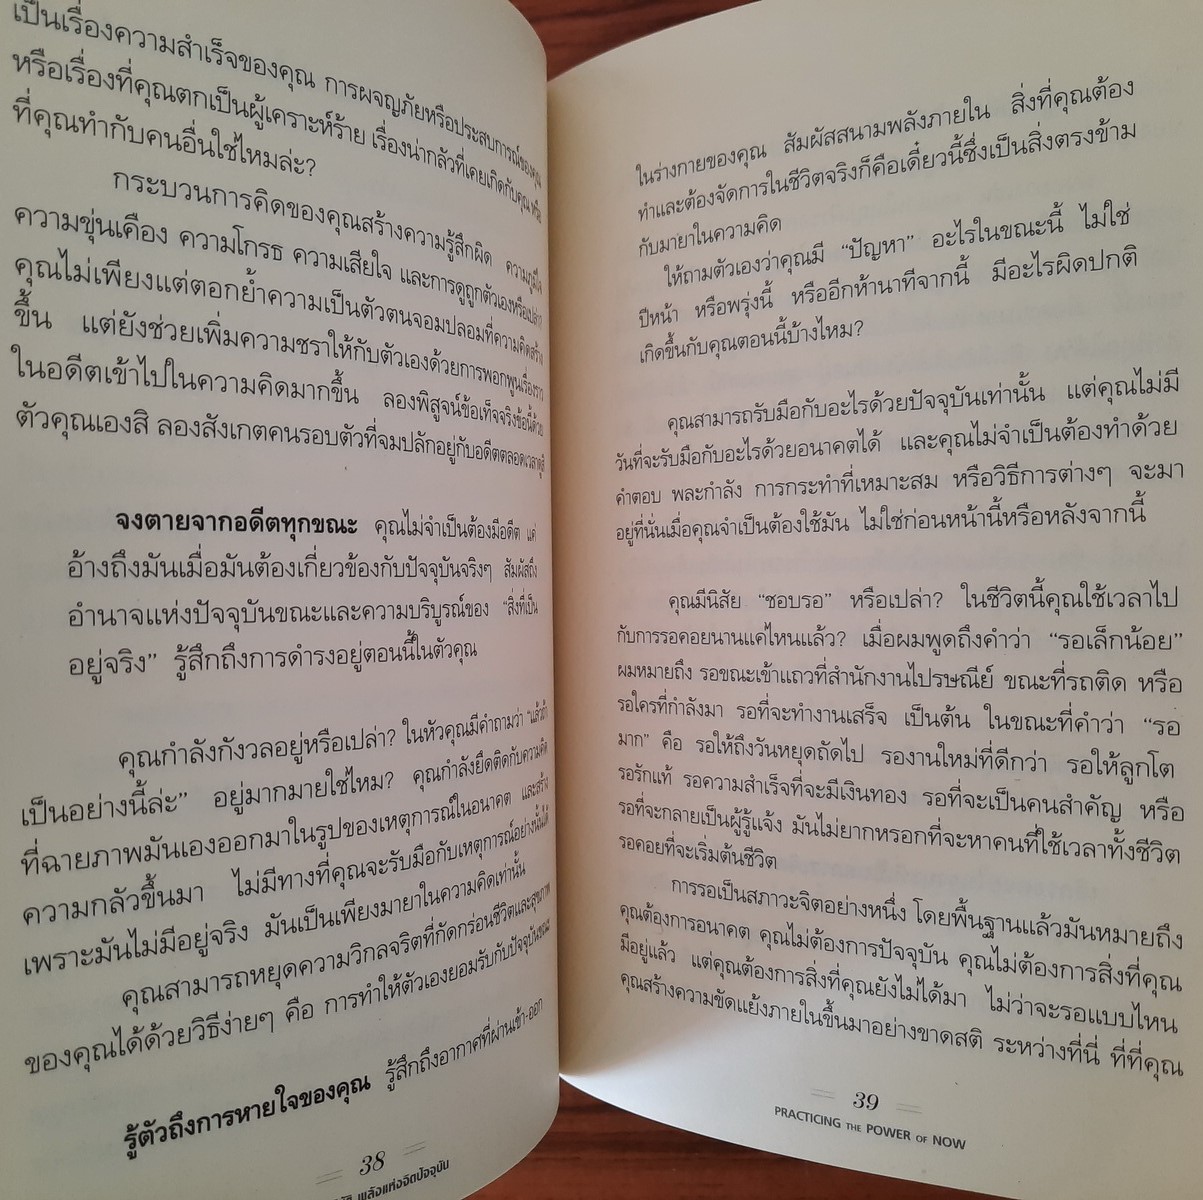 เป็นเรื่องความสำเร็จของคุณ การผจญภัยหรือประสบการณ์ของคุณ
หรือเรื่องที่คุณตกเป็นผู้เคราะห์ร้าย เรื่องน่ากลัวที่เคยเกิดกับคุณ หรือสิ่ง
ที่คุณทำกับคนอื่นใช่ไหมล่ะ?
กระบวนการคิดของคุณสร้างความรู้สึกผิด ความภูมิใจ
ความขุ่นเคือง ความโกรธ ความเสียใจ และการดูถูกตัวเองหรือเปล่า?
คุณไม่เพียงแต่ตอกย้ำความเป็นตัวตนจอมปลอมที่ความคิดสร้าง
ขึ้น แต่ยังช่วยเพิ่มความชราให้กับตัวเองด้วยการพอกพูนเรื่องราว
ในอดีตเข้าไปในความคิดมากขึ้น ลองพิสูจน์ข้อเท็จจริงข้อนี้ด้วย
ตัวคุณเองสิ ลองสังเกตคนรอบตัวที่จมปลักอยู่กับอดีตตลอดเวลาดูสิ
จงตายจากอดีตทุกขณะ คุณไม่จำเป็นต้องมีอดีต แค่
อ้างถึงมันเมื่อมันต้องเกี่ยวข้องกับปัจจุบันจริงๆ สัมผัสถึง
อำนาจแห่งปัจจุบันขณะและความบริบูรณ์ของ “สิ่งที่เป็น
อยู่จริง” รู้สึกถึงการดำรงอยู่ตอนนี้ในตัวคุณ
คุณกำลังกังวลอยู่หรือเปล่า? ในหัวคุณมีคำถามว่า “แล้วถ้า
เป็นอย่างนี้ล่ะ” อยู่มากมายใช่ไหม? คุณกำลังยึดติดกับความคิด
ที่ฉายภาพมันเองออกมาในรูปของเหตุการณ์ในอนาคต และสร้าง
ความกลัวขึ้นมา ไม่มีทางที่คุณจะรับมือกับเหตุการณ์อย่างนั้นได้
เพราะมันไม่มีอยู่จริง มันเป็นเพียงมายาในความคิดเท่านั้น
คุณสามารถหยุดความวิกลจริตที่กัดกร่อนชีวิตและสุขภาพ
ของคุณได้ด้วยวิธีง่ายๆ คือ การทำให้ตัวเองยอมรับกับปัจจุบันขณะ
รู้ตัวถึงการหายใจของคุณ รู้สึกถึงอากาศที่ผ่านเข้า-ออก
38
พลังแห่งจิตปัจจุบัน
ในร่างกายของคุณ สัมผัสสนามพลังภายใน สิ่งที่คุณต้อง
ทำและต้องจัดการในชีวิตจริงก็คือเดี๋ยวนี้ซึ่งเป็นสิ่งตรงข้าม
กับมายาในความคิด
ให้ถามตัวเองว่าคุณมี “ปัญหา” อะไรในขณะนี้ ไม่ใช่
ปีหน้า หรือพรุ่งนี้ หรืออีกห้านาทีจากนี้ มีอะไรผิดปกติ
เกิดขึ้นกับคุณตอนนี้บ้างไหม?
คุณสามารถรับมือกับอะไรด้วยปัจจุบันเท่านั้น แต่คุณไม่มี
วันที่จะรับมือกับอะไรด้วยอนาคตได้ และคุณไม่จำเป็นต้องทำด้วย
คำตอบ พละกำลัง การกระทำที่เหมาะสม หรือวิธีการต่างๆ จะมา
อยู่ที่นั่นเมื่อคุณจำเป็นต้องใช้มัน ไม่ใช่ก่อนหน้านี้หรือหลังจากนี้
คุณมีนิสัย “ชอบรอ” หรือเปล่า? ในชีวิตนี้คุณใช้เวลาไป
กับการรอคอยนานแค่ไหนแล้ว? เมื่อผมพูดถึงคำว่า “รอเล็กน้อย”
ผมหมายถึง รอขณะเข้าแถวที่สำนักงานไปรษณีย์ ขณะที่รถติด หรือ
รอใครที่กำลังมา รอที่จะทำงานเสร็จ เป็นต้น ในขณะที่คำว่า “รอ
มาก” คือ รอให้ถึงวันหยุดถัดไป รองานใหม่ที่ดีกว่า รอให้ลูกโต
รอรักแท้ รอความสำเร็จที่จะมีเงินทอง รอที่จะเป็นคนสำคัญ หรือ
รอที่จะกลายเป็นผู้รู้แจ้ง มันไม่ยากหรอกที่จะหาคนที่ใช้เวลาทั้งชีวิต
รอคอยที่จะเริ่มต้นชีวิต
การรอเป็นสภาวะจิตอย่างหนึ่ง โดยพื้นฐานแล้วมันหมายถึง
คุณต้องการอนาคต คุณไม่ต้องการปัจจุบัน คุณไม่ต้องการสิ่งที่คุณ
มีอยู่แล้ว แต่คุณต้องการสิ่งที่คุณยังไม่ได้มา ไม่ว่าจะรอแบบไหน
คุณสร้างความขัดแย้งภายในขึ้นมาอย่างขาดสติ ระหว่างที่นี่ ที่ที่คุณ
39
PRACTICING THE POWER OF NOW